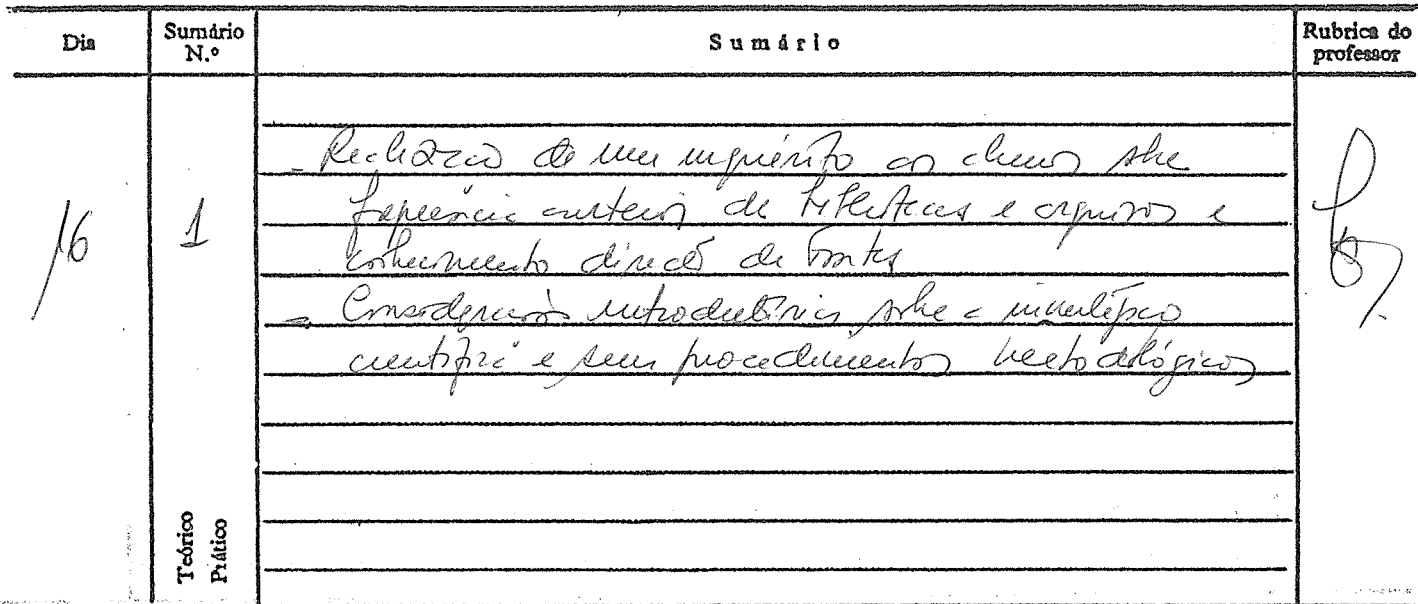 Dia
Sumário N.º
Sumário
Rubrica do professor
16
1
- Realização de um inquérito aos alunos sobre
frequência anterior de bibliotecas e arquivos e
conhecimento directo de fontes
- Considerações introdutórias sobre a investigação
científica e seus procedimentos metodológicos
Teórico
Prático